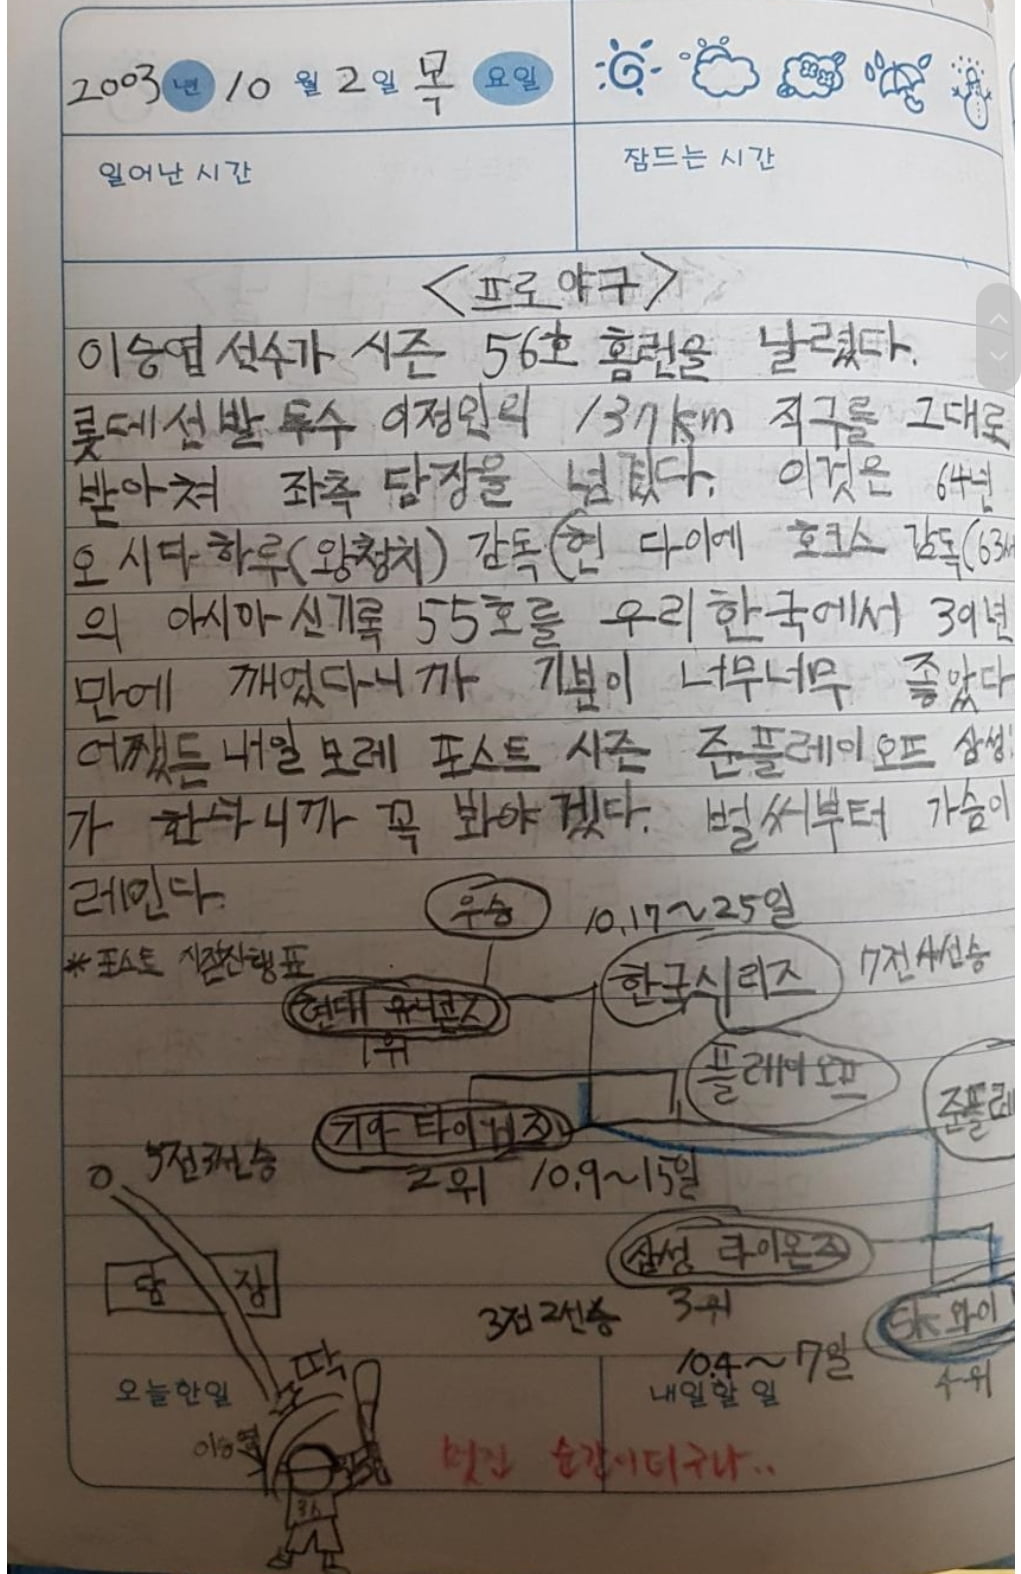 2003년 10월 2일 목요일
일어난 시간
잠드는 시간
<프로야구>
이승엽 선수가 시즌 56호 홈런을 날렸다.
롯데 선발 투수 이정민의 137km 직구를 그대로
받아쳐 좌측 담장을 넘겼다. 이것은 64년
오 시다하루(왕청치) 감독(현 다이에 호크스 감독(63세
의 아시아 신기록 55호를 우리 한국에서 39년
만에 깨었다니까 기분이 너무너무 좋았다
어쨌든 내일 모레 포스트 시즌 준플레이오프 삼성
가 한다니까 꼭 봐야겠다. 벌써부터 가슴이
레인다.
우승
10.17~25일
*포스트 시즌진행표
현대 유니콘즈
한국시리즈
7전 4선승
1위
플레이오프
기아 타이거즈
준플레
5전3선승
2위
10.9~15일
삼성 라이온즈
담장
3전2선승
3위
SK 와이
딱
10.4~7일
4위
오늘한일
내일할 일
이승엽
멋진 순간이더구나..
36